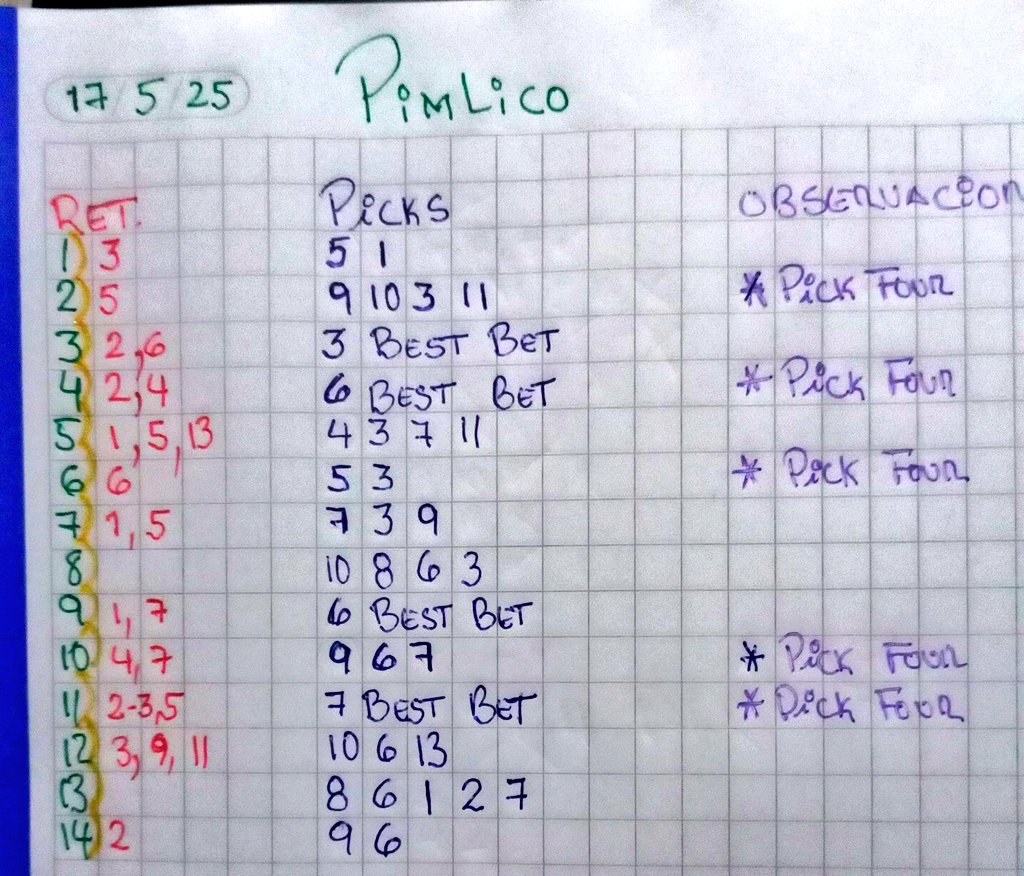 17/5/25 PimLico
RET. Picks OBSERVACion
1) 3 5 1
2) 5 9 10 3 11 * Pick Four
3) 2,6 3 BEST BET
4) 2,4 6 BEST BET * Pick Four
5) 1,5,13 4 3 7 11
6) 6 5 3 * Pick Four
7) 1,5 7 3 9
8) 10 8 6 3
9) 1,7 6 BEST BET
10) 4,7 9 6 7 * Pick Four
11) 2-3,5 7 BEST BET * Pick Four
12) 3,9,11 10 6 13
13) 8 6 1 2 7
14) 2 9 6